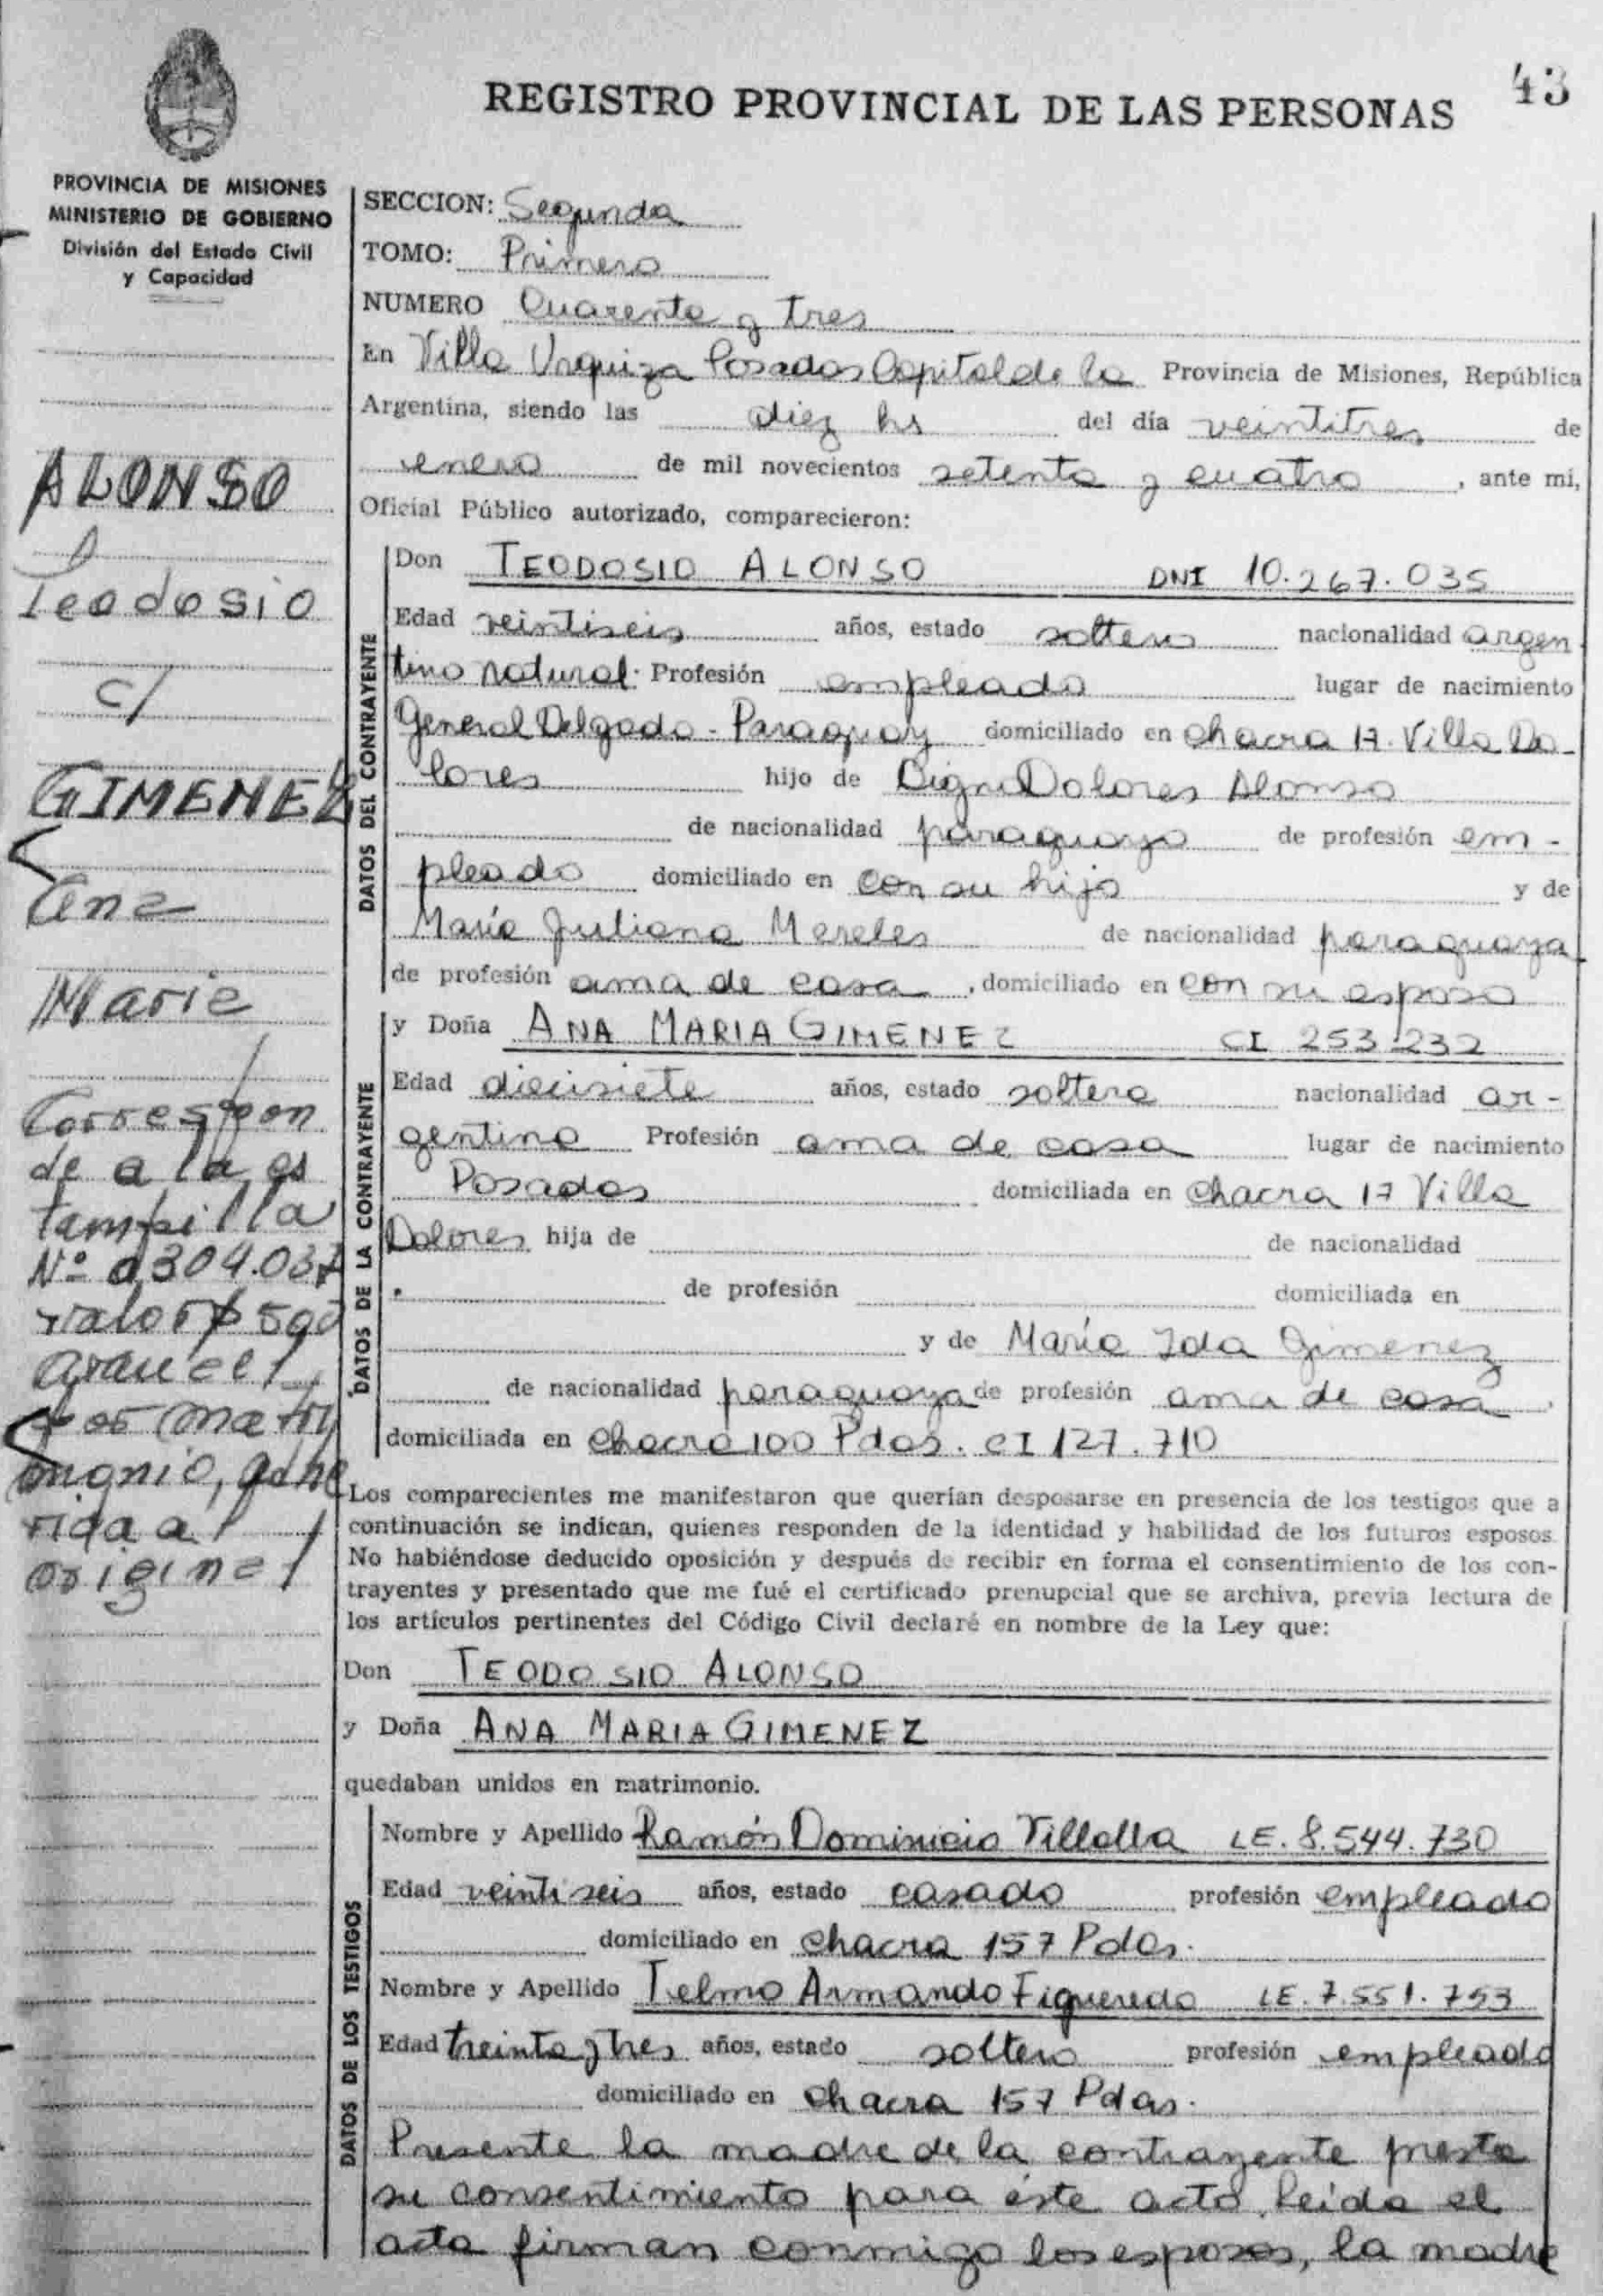 43
REGISTRO PROVINCIAL DE LAS PERSONAS
PROVINCIA DE MISIONES
MINISTERIO DE GOBIERNO
División del Estado Civil
y Capacidad
ALONSO
Teodosio
c/
GIMENEZ
Ana
Maria
Correspon
de a la es
tampilla
Nº 0304.037
valor $ 500
arancel
por matri
monio, adhe
rida al
original
SECCION: Segunda
TOMO: Primero
NUMERO Cuarenta y tres
En Villa Urquiza Posadas Capital de la Provincia de Misiones, República
Argentina, siendo las diez hs del día veintitres de
enero de mil novecientos setenta y cuatro, ante mi,
Oficial Público autorizado, comparecieron:
DATOS DEL CONTRAYENTE
Don TEODOSIO ALONSO DNI 10.267.035
Edad veintiseis años, estado soltero nacionalidad argen
tino natural. Profesión empleado lugar de nacimiento
General Delgado - Paraguay domiciliado en chacra 17. Villa Do-
lores hijo de Digno Dolores Alonso
de nacionalidad paraguayo de profesión em-
pleado domiciliado en con su hijo y de
María Juliana Mereles de nacionalidad paraguaya
de profesión ama de casa, domiciliado en con su esposo
DATOS DE LA CONTRAYENTE
y Doña ANA MARIA GIMENEZ CI 253.232
Edad diecisiete años, estado soltera nacionalidad ar-
gentina Profesión ama de casa lugar de nacimiento
Posadas domiciliada en chacra 17 Villa
Dolores hija de de nacionalidad
de profesión domiciliada en
y de María Ida Gimenez
de nacionalidad paraguaya de profesión ama de casa,
domiciliada en chacra 100 Pdas. CI 127.710
Los comparecientes me manifestaron que querían desposarse en presencia de los testigos que a
continuación se indican, quienes responden de la identidad y habilidad de los futuros esposos.
No habiéndose deducido oposición y después de recibir en forma el consentimiento de los con-
trayentes y presentado que me fué el certificado prenupcial que se archiva, previa lectura de
los artículos pertinentes del Código Civil declaré en nombre de la Ley que:
Don TEODOSIO ALONSO
y Doña ANA MARIA GIMENEZ
quedaban unidos en matrimonio.
DATOS DE LOS TESTIGOS
Nombre y Apellido Ramón Dominicio Villalla LE. 8.544.730
Edad veintiseis años, estado casado profesión empleado
domiciliado en chacra 157 Pdas.
Nombre y Apellido Telmo Armando Figueredo LE. 7.551.753
Edad treinta y tres años, estado soltero profesión empleado
domiciliado en chacra 157 Pdas.
Presente la madre de la contrayente presta
su consentimiento para éste acto. Leída el
acta firman conmigo los esposos, la madre